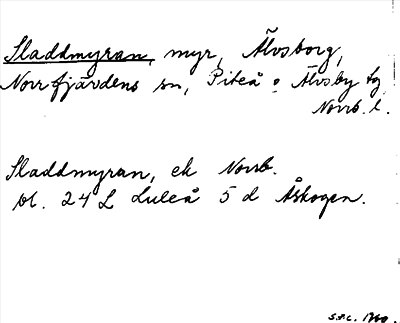 Sladdmyran, myr, Älvsborg,
Norrfjärdens sn, Piteå o Älvsby tg
Norrb. l.
Sladdmyran, ek Norrb.
bl. 24 L Luleå 5 d Åskogen.
1960.